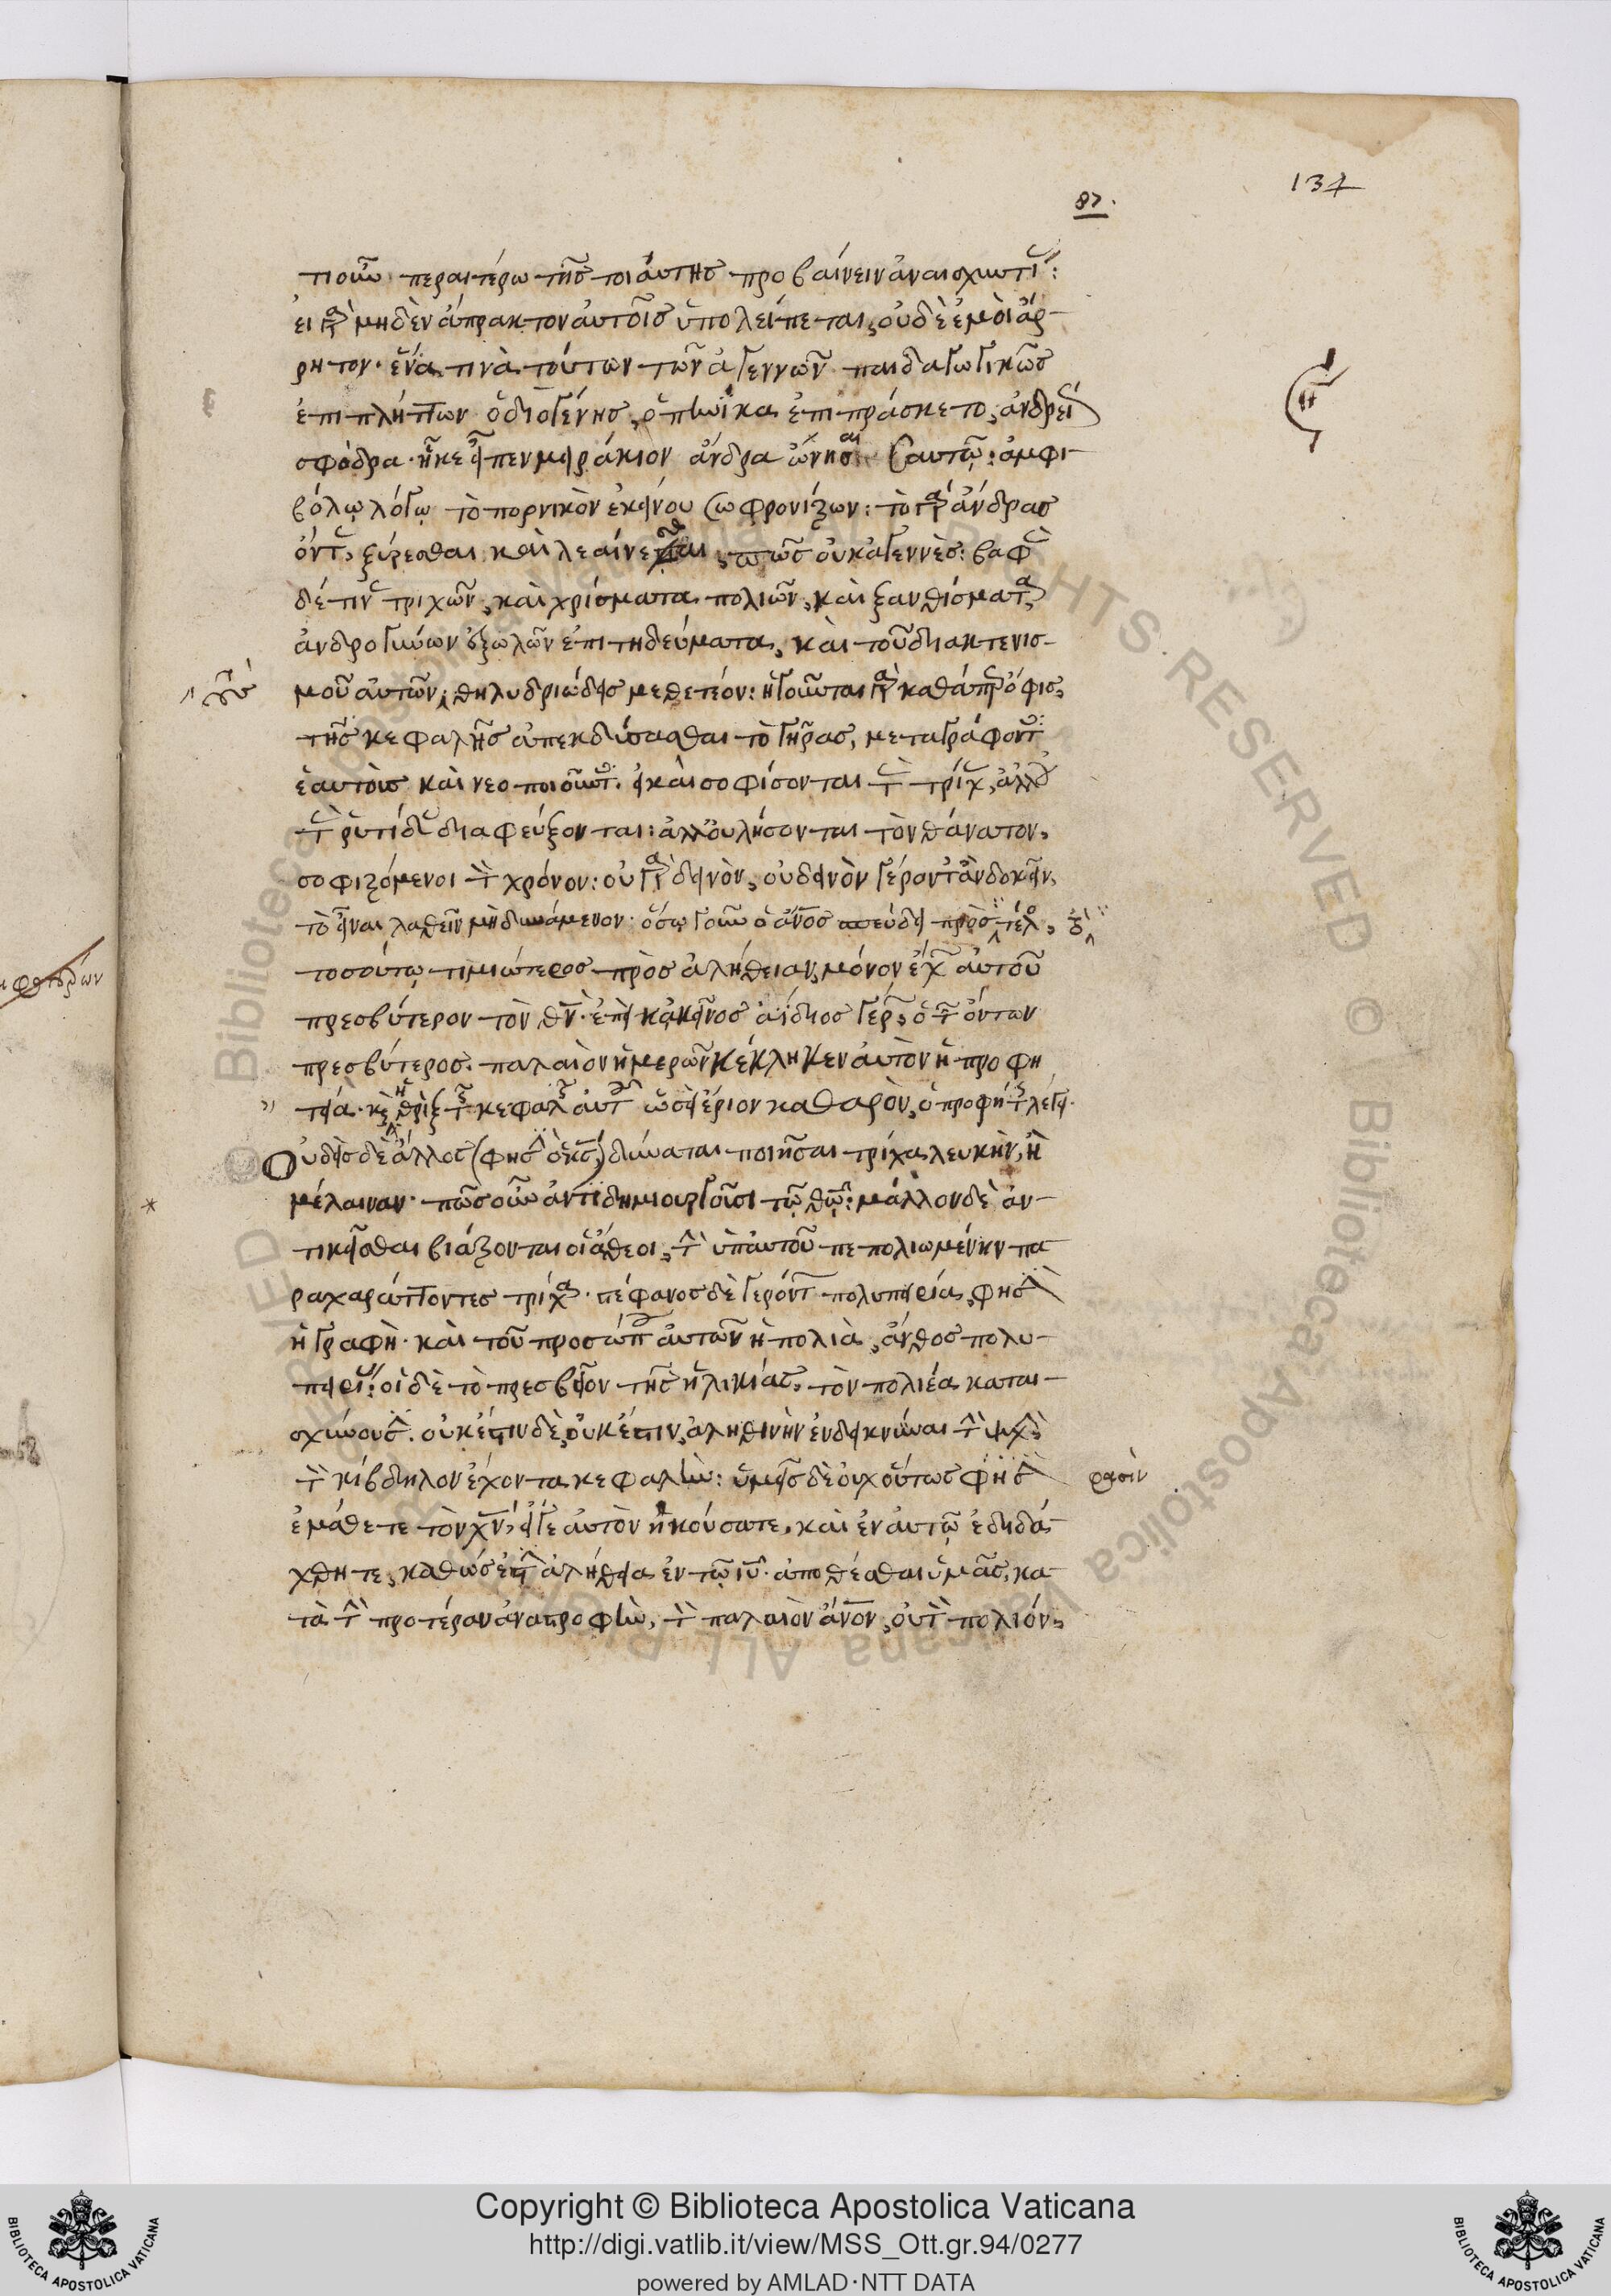 134
87.
τι οὖν περαιτέρω τῆς τοιαύτης προβαίνειν ἀναισχυντί:
εἰ γὰρ μηδὲν ἄπρακτον αὐτοῖς ὑπολείπεται, οὐδὲ ἐμοὶ ἄρ-
ρητον· ἕνα τινὰ τούτων τῶν ἀγεννῶν παιδαγωγικῶς
ἐπιπλήττων ὁ διογένης, ὁπηνίκα ἐπιπράσκετο, ἀνδρεί
σφόδρα· ἧκε εἶπεν μειράκιον ἄνδρα ὤνησαι σαυτῷ: ἀμφι-
βόλῳ λόγῳ τὸ πορνικὸν ἐκείνου σωφρονίζων: τὸ γὰρ ἄνδρας
ὄντ, ξύρεσθαι καὶ λεαίνεσθαι, πῶς οὐκ ἀγεννὲς: βαφὰς
δέ τιν τριχῶν, καὶ χρίσματα πολιῶν, καὶ ξανθίσματα,
ἀνδρογύνων ἐξωλῶν ἐπιτηδεύματα, καὶ τοὺς διακτενισ-
μοὺς αὐτῶν, θηλυδριώδεις μεθετέον: ἡγοῦνται γὰρ καθάπερ ὄφις,
τῆς κεφαλῆς ἀπεκδύσασθαι τὸ γῆρας, μεταγράφοντ
ἑαυτοὺς καὶ νεοποιοῦντ. εἰ καὶ σοφίσονται τ τρίχ, ἀλλ
τ ῥυτίδ διαφεύξονται: ἀλλ οὐ λήσονται τὸν θάνατον,
σοφιζόμενοι τ χρόνον: οὐ γὰρ δεινὸν, οὐ δεινὸν γέροντ ἂν δοκεῖν,
τὸ εἶναι λαθεῖν μὴ δυνάμενον: ὅσῳ γοῦν ὁ ἄνος σπεύδει πρὸς τέλ,
τοσούτῳ τιμιώτερος πρὸς ἀλήθειαν, μόνον ἔχ αὐτοῦ
πρεσβύτερον τὸν θν· ἐπεὶ κἀκεῖνος ἀίδιος γέρ, ὁ τ ὄντων
πρεσβύτερος. παλαιὸν ἡμερῶν κέκληκεν αὐτὸν ἡ προφη
τεία· κ ἡ θρὶξ τ κεφαλ αὐτ ὡσεὶ ἔριον καθαρὸν, ὁ προφήτ λέγει.
Οὐδεὶς δὲ ἄλλος (φησ ὁ κς,) δύναται ποιῆσαι τρίχα λευκὴν, ἢ
μέλαιναν· πῶς οὖν ἀντιδημιουργοῦσι τῷ θῷ: μᾶλλον δὲ ἀν-
τικεῖσθαι βιάζονται οἱ ἄθεοι, τ ὑπ αὐτοῦ πεπολιωμένην πα
ραχαράττοντες τρίχα· στέφανος δὲ γερόντ πολυπειρία, φησ
ἡ γραφὴ· καὶ τοῦ προσώπ αὐτῶν ἡ πολιὰ, ἄνθος πολυ-
πειρί: οἱ δὲ τὸ πρεσβεῖον τῆς ἡλικίας, τὸν πολιέα καται-
σχύνουσ. οὐκ ἔστιν δὲ, οὐκ ἔστιν, ἀληθινὴν ἐνδεικνύναι τ ψυχὴ
τ κίβδηλον ἔχοντα κεφαλὴν: ὑμεῖς δὲ οὐχ οὕτως φησ
φασὶν
ἐμάθετε τὸν χν, εἴ γε αὐτὸν ἠκούσατε, καὶ ἐν αὐτῷ ἐδιδά-
χθητε, καθώς ἐστ ἀλήθεια ἐν τῷ ιυ. ἀποθέσθαι ὑμᾶς, κα-
τὰ τ προτέραν ἀναστροφὴν, τ παλαιὸν ἄνον, οὐ τ πολιόν,
Copyright © Biblioteca Apostolica Vaticana
http://digi.vatlib.it/view/MSS_Ott.gr.94/0277
powered by AMLAD·NTT DATA
BIBLIOTECA APOSTOLICA VATICANA
BIBLIOTECA APOSTOLICA VATICANA